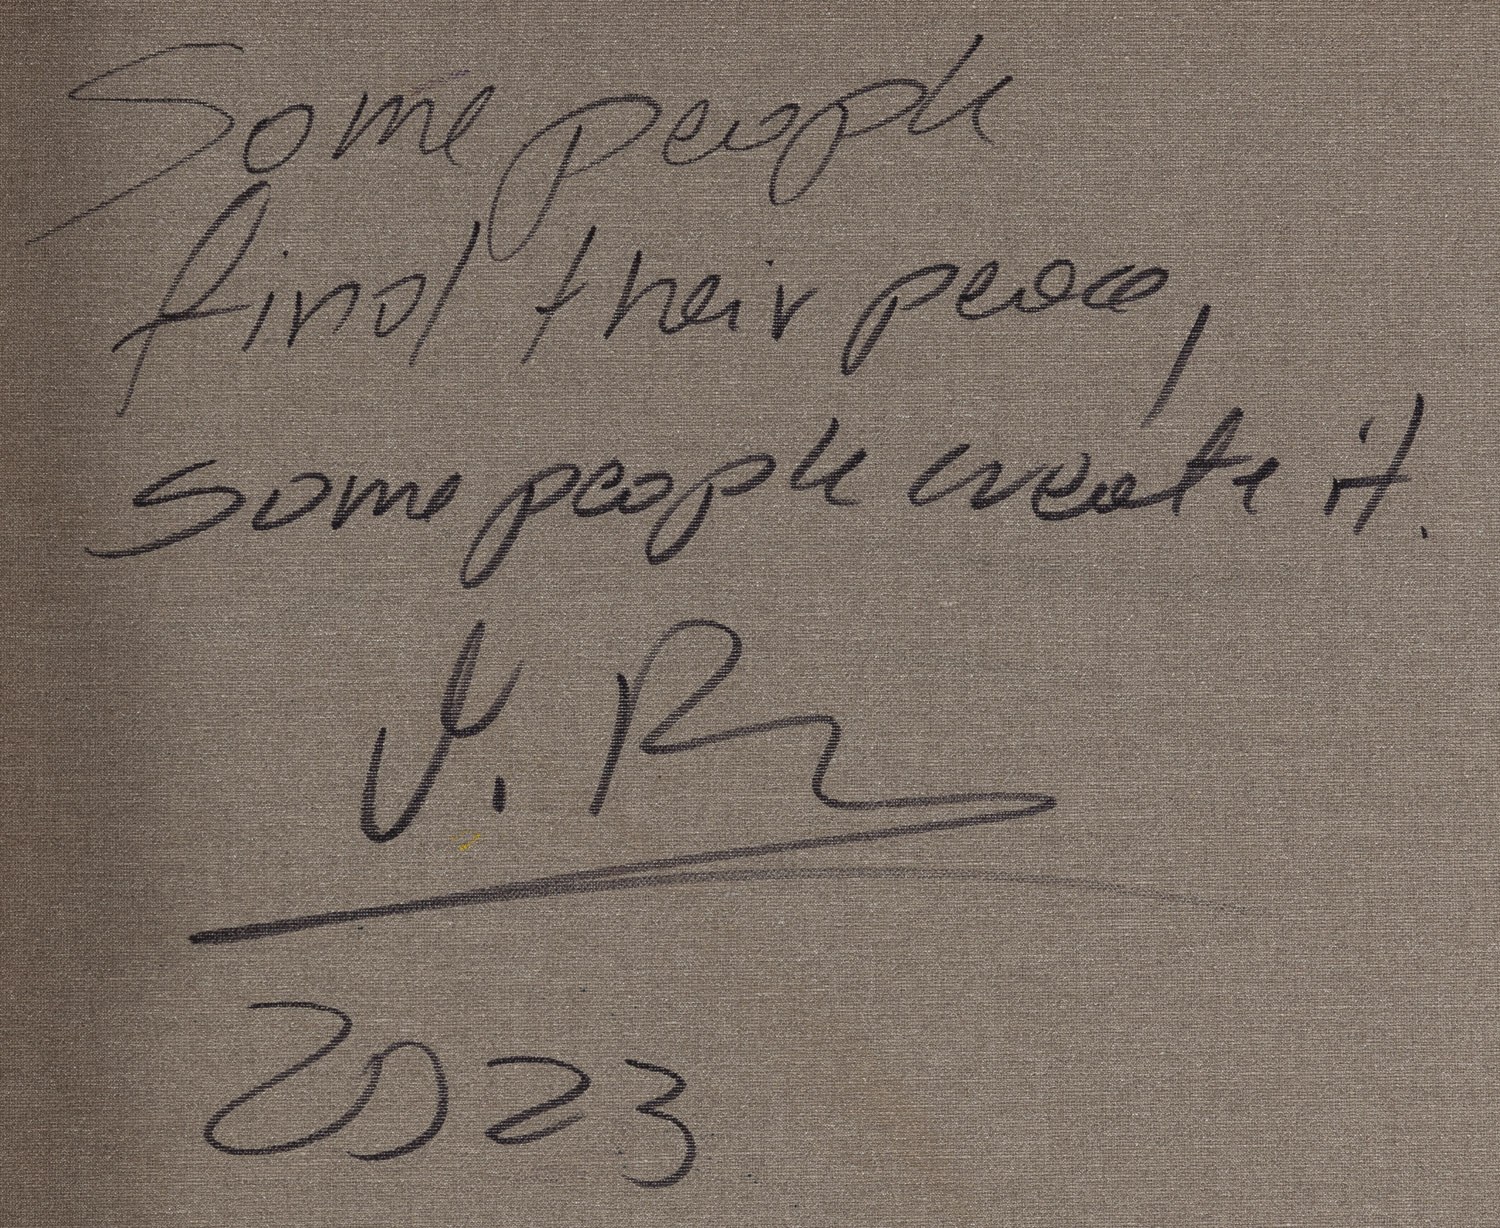 Some people
find their peace,
some people create it.
V. R
2023